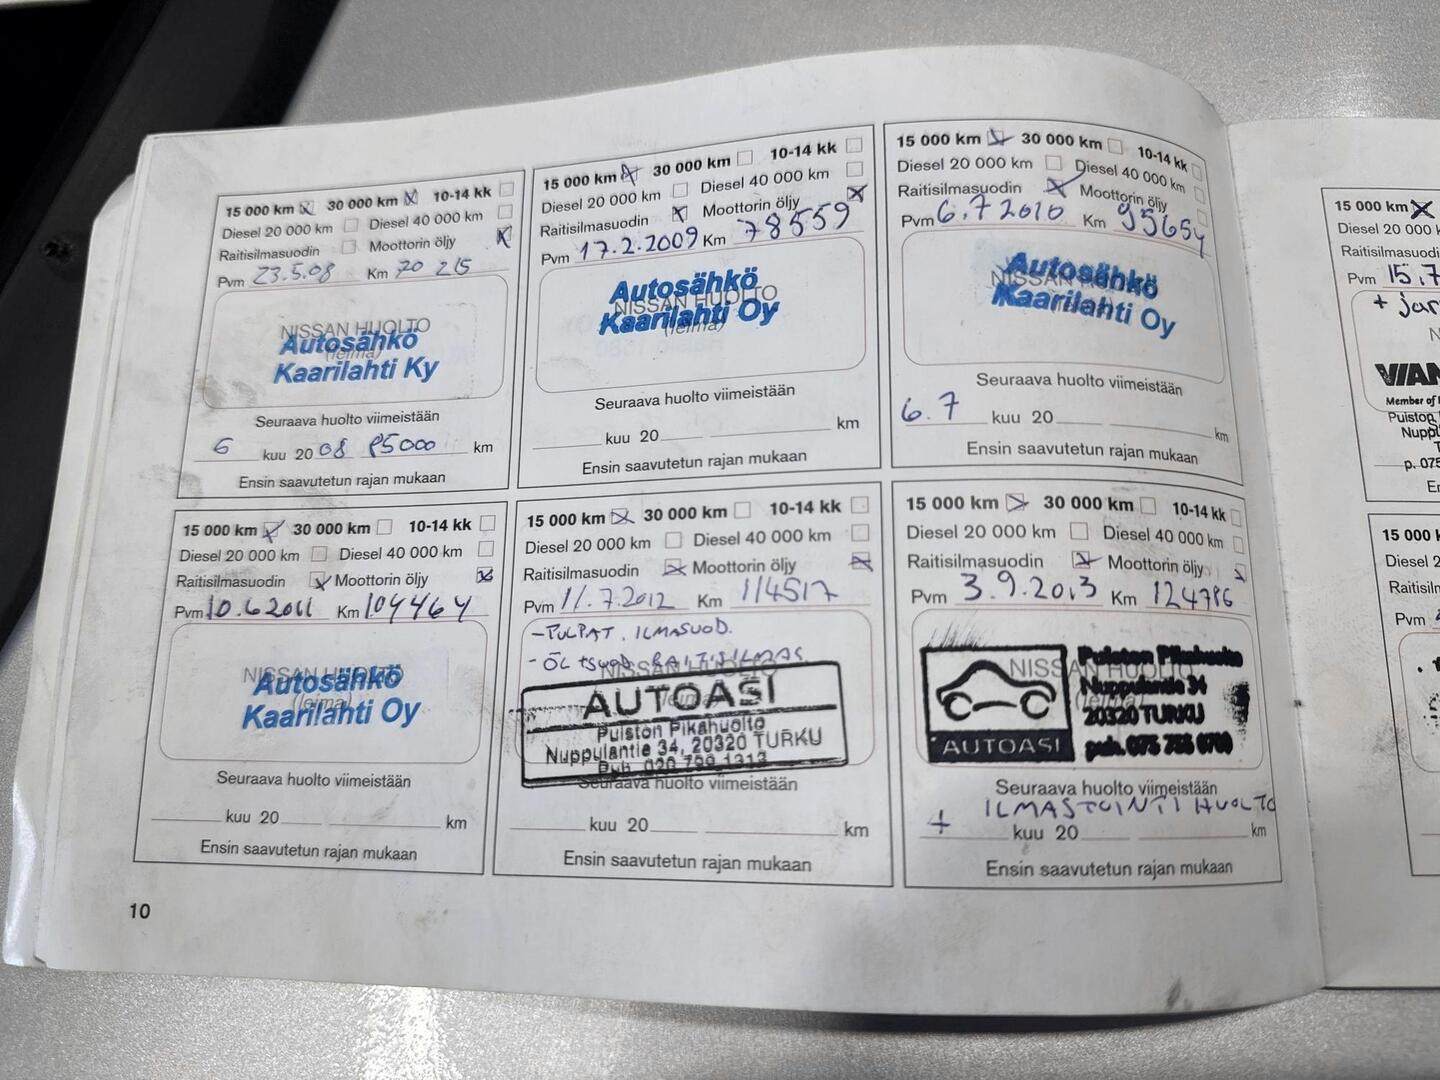 15 000 km 30 000 km 10-14 kk
Diesel 20 000 km Diesel 40 000 km
Raitisilmasuodin Moottorin öljy
Pvm 23.5.08 Km 70 215
NISSAN HUOLTO
(leima)
Autosähkö
Kaarilahti Ky
Seuraava huolto viimeistään
6 kuu 20 08 85000 km
Ensin saavutetun rajan mukaan
15 000 km 30 000 km 10-14 kk
Diesel 20 000 km Diesel 40 000 km
Raitisilmasuodin Moottorin öljy
Pvm 17.2.2009 Km 78559
Autosähkö
NISSAN HUOLTO
Kaarilahti Oy
(leima)
Seuraava huolto viimeistään
kuu 20 km
Ensin saavutetun rajan mukaan
15 000 km 30 000 km 10-14 kk
Diesel 20 000 km Diesel 40 000 km
Raitisilmasuodin Moottorin öljy
Pvm 6.7 2010 Km 95654
Autosähkö
NISSAN HUOLTO
Kaarilahti Oy
Seuraava huolto viimeistään
6.7 kuu 20 km
Ensin saavutetun rajan mukaan
15 000 km 30 000 km 10-14 kk
Diesel 20 000 km Diesel 40 000 km
Raitisilmasuodin Moottorin öljy
Pvm 10.6 2011 Km 104464
NISSAN HUOLTO
Autosähkö
(leima)
Kaarilahti Oy
Seuraava huolto viimeistään
kuu 20 km
Ensin saavutetun rajan mukaan
15 000 km 30 000 km 10-14 kk
Diesel 20 000 km Diesel 40 000 km
Raitisilmasuodin Moottorin öljy
Pvm 11.7.2012 Km 114517
- PULPAT, ILMASUOD.
NISSAN HUOLTO
AUTOASI
Puiston Pikahuolto
Nuppulantie 34, 20320 TURKU
Puh. 020 799 1313
Seuraava huolto viimeistään
kuu 20 km
Ensin saavutetun rajan mukaan
15 000 km 30 000 km 10-14 kk
Diesel 20 000 km Diesel 40 000 km
Raitisilmasuodin Moottorin öljy
Pvm 3.9.2013 Km 124786
NISSAN HUOLTO
(leima)
AUTOASI
Puiston Pikahuolto
Nuppulantie 34
20320 TURKU
Seuraava huolto viimeistään
+ ILMASTOINTI HUOLTO
kuu 20 km
Ensin saavutetun rajan mukaan
10
15 000 km
Pvm 15.7
+ jar
VIAN
Member of
Puiston
Nuppu
p. 075
15 000
Diesel 2
Raitisilm
Pvm